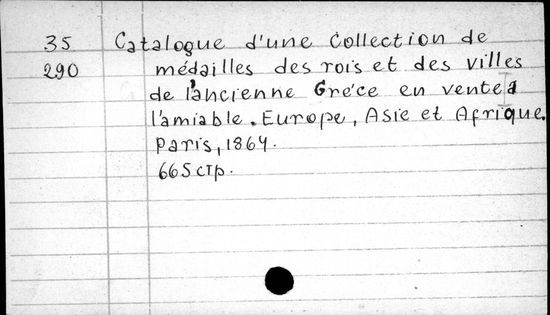 35 Catalogue d'une Collection de
290 médailles des rois et des villes
de l'ancienne Gréce en vente à
l'amiable. Europe, Asie et Afrique.
Paris, 1864.
665 стр.